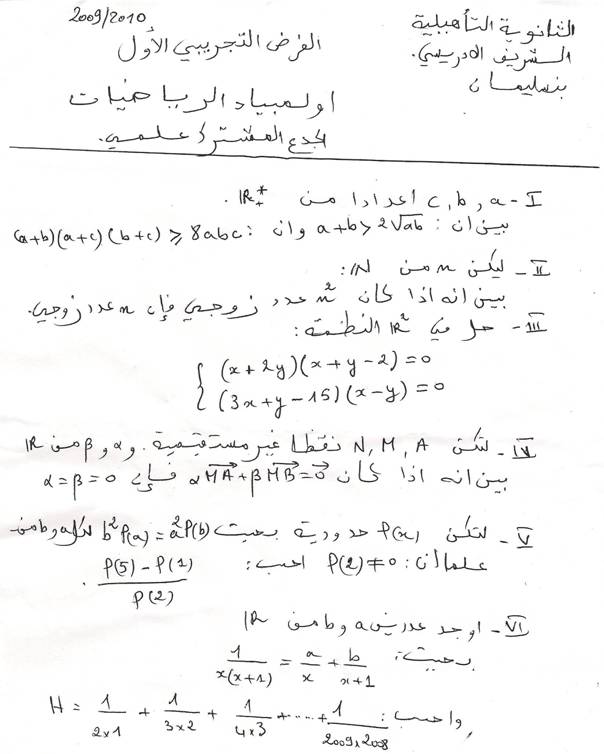 2009/2010
الثانوية التأهيلية
الشريف الادريسي.
بنسليمان
الفرض التجريبي الأول
اولمبياد الرياضيات
الجدع المشترك علمي.
I - a, b, c اعدادا من IR*+ .
بين ان : a+b > 2√ab وان : (a+b)(a+c)(b+c) ⩾ 8abc
II - ليكن n من IN:
بين انه اذا كان n² عدد زوجي فإن n عدد زوجي.
III - حل في IR² النظمة :
{ (x+2y)(x+y-2)=0
(3x+y-15)(x-y)=0
IV - لتكن N, M, A نقطا غير مستقيمية. و α و β من IR
بين انه اذا كان αMA→+βMB→=0→ فإن α=β=0
V - لتكن P(x) حدودية بحيث b²P(a)=a²P(b) لكل a و b من
علما ان : P(2)≠0 احسب : (P(5)-P(1))/P(2) .
VI - اوجد عددين a و b من IR
بحيث: 1/(x(x+1)) = a/x + b/(x+1)
واحسب : H = 1/(2×1) + 1/(3×2) + 1/(4×3) + ..... + 1/(2009×2008)